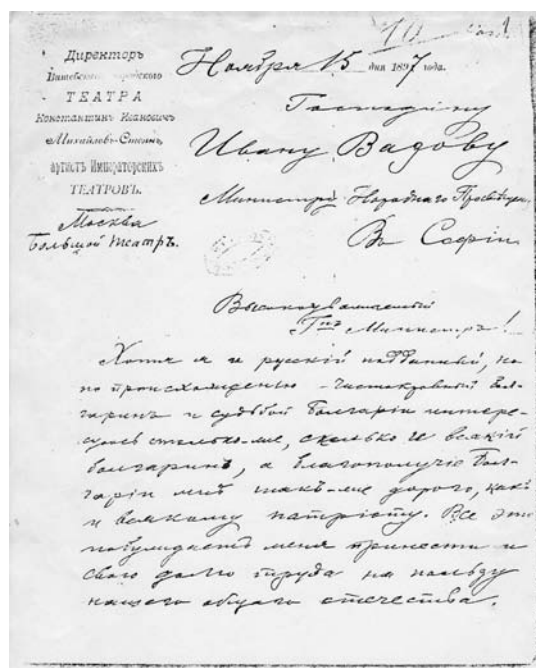 Директоръ
Витебскаго Городского
ТЕАТРА
Константинъ Ивановичъ
Михайловъ-Стоянъ,
артистъ Императорскихъ
ТЕАТРОВЪ.
Москва
Большой Театръ.
Ноября 15 дня 1897 года.
Господину
Ивану Вазову
Министру Народнаго Просвѣщен.
Въ Софіи
Высокоуважаемый
Гнъ Министръ!
Хотя я и русскій подданный, но
по происхожденью - чистокровный Бол-
гаринъ и судьбой Болгаріи интере-
суюсь столько-же, сколько и всякій
болгаринъ, а благополучіе Бол-
гаріи мнѣ такъ-же дорого, какъ
и всякому патріоту. Все это
побуждаетъ меня принести и
свою долю труда на пользу
нашего общаго отечества.